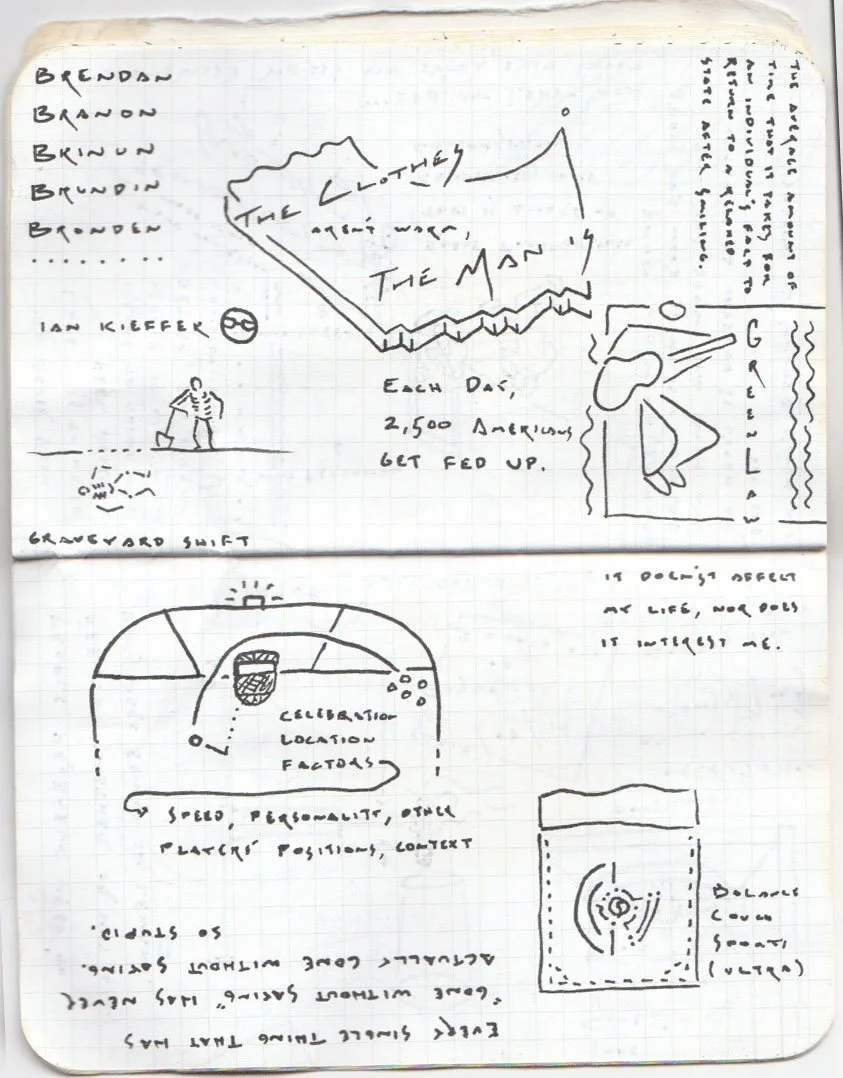 BRENDAN
BRANON
BRINUN
BRUNDIN
BRONDEN
.........
IAN KIEFFER
GRAVEYARD SHIFT
THE CLOTHES
AREN'T WARM,
THE MAN IS
EACH DAY,
2,500 AMERICANS
GET FED UP.
THE AVERAGE AMOUNT OF
TIME THAT IT TAKES FOR
AN INDIVIDUAL'S FACE TO
RETURN TO A RELAXED
STATE AFTER SMILING.
GREENLAW
IT DOESN'T AFFECT
MY LIFE, NOR DOES
IT INTEREST ME.
CELEBRATION
LOCATION
FACTORS
SPEED, PERSONALITY, OTHER
PLAYERS' POSITIONS, CONTEXT
BALANCE
COUCH
SHORTS
(ULTRA)
EVERY SINGLE THING THAT HAS
"GONE WITHOUT SAYING" HAS NEVER
ACTUALLY GONE WITHOUT SAYING.
SO STUPID.